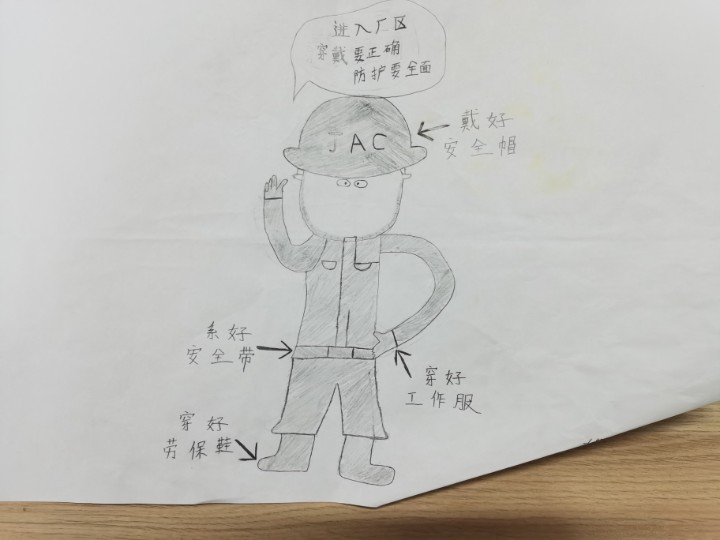 进入厂区
穿戴要正确
防护要全面
JAC
戴好
安全帽
系好
安全带
穿好
工作服
穿好
劳保鞋